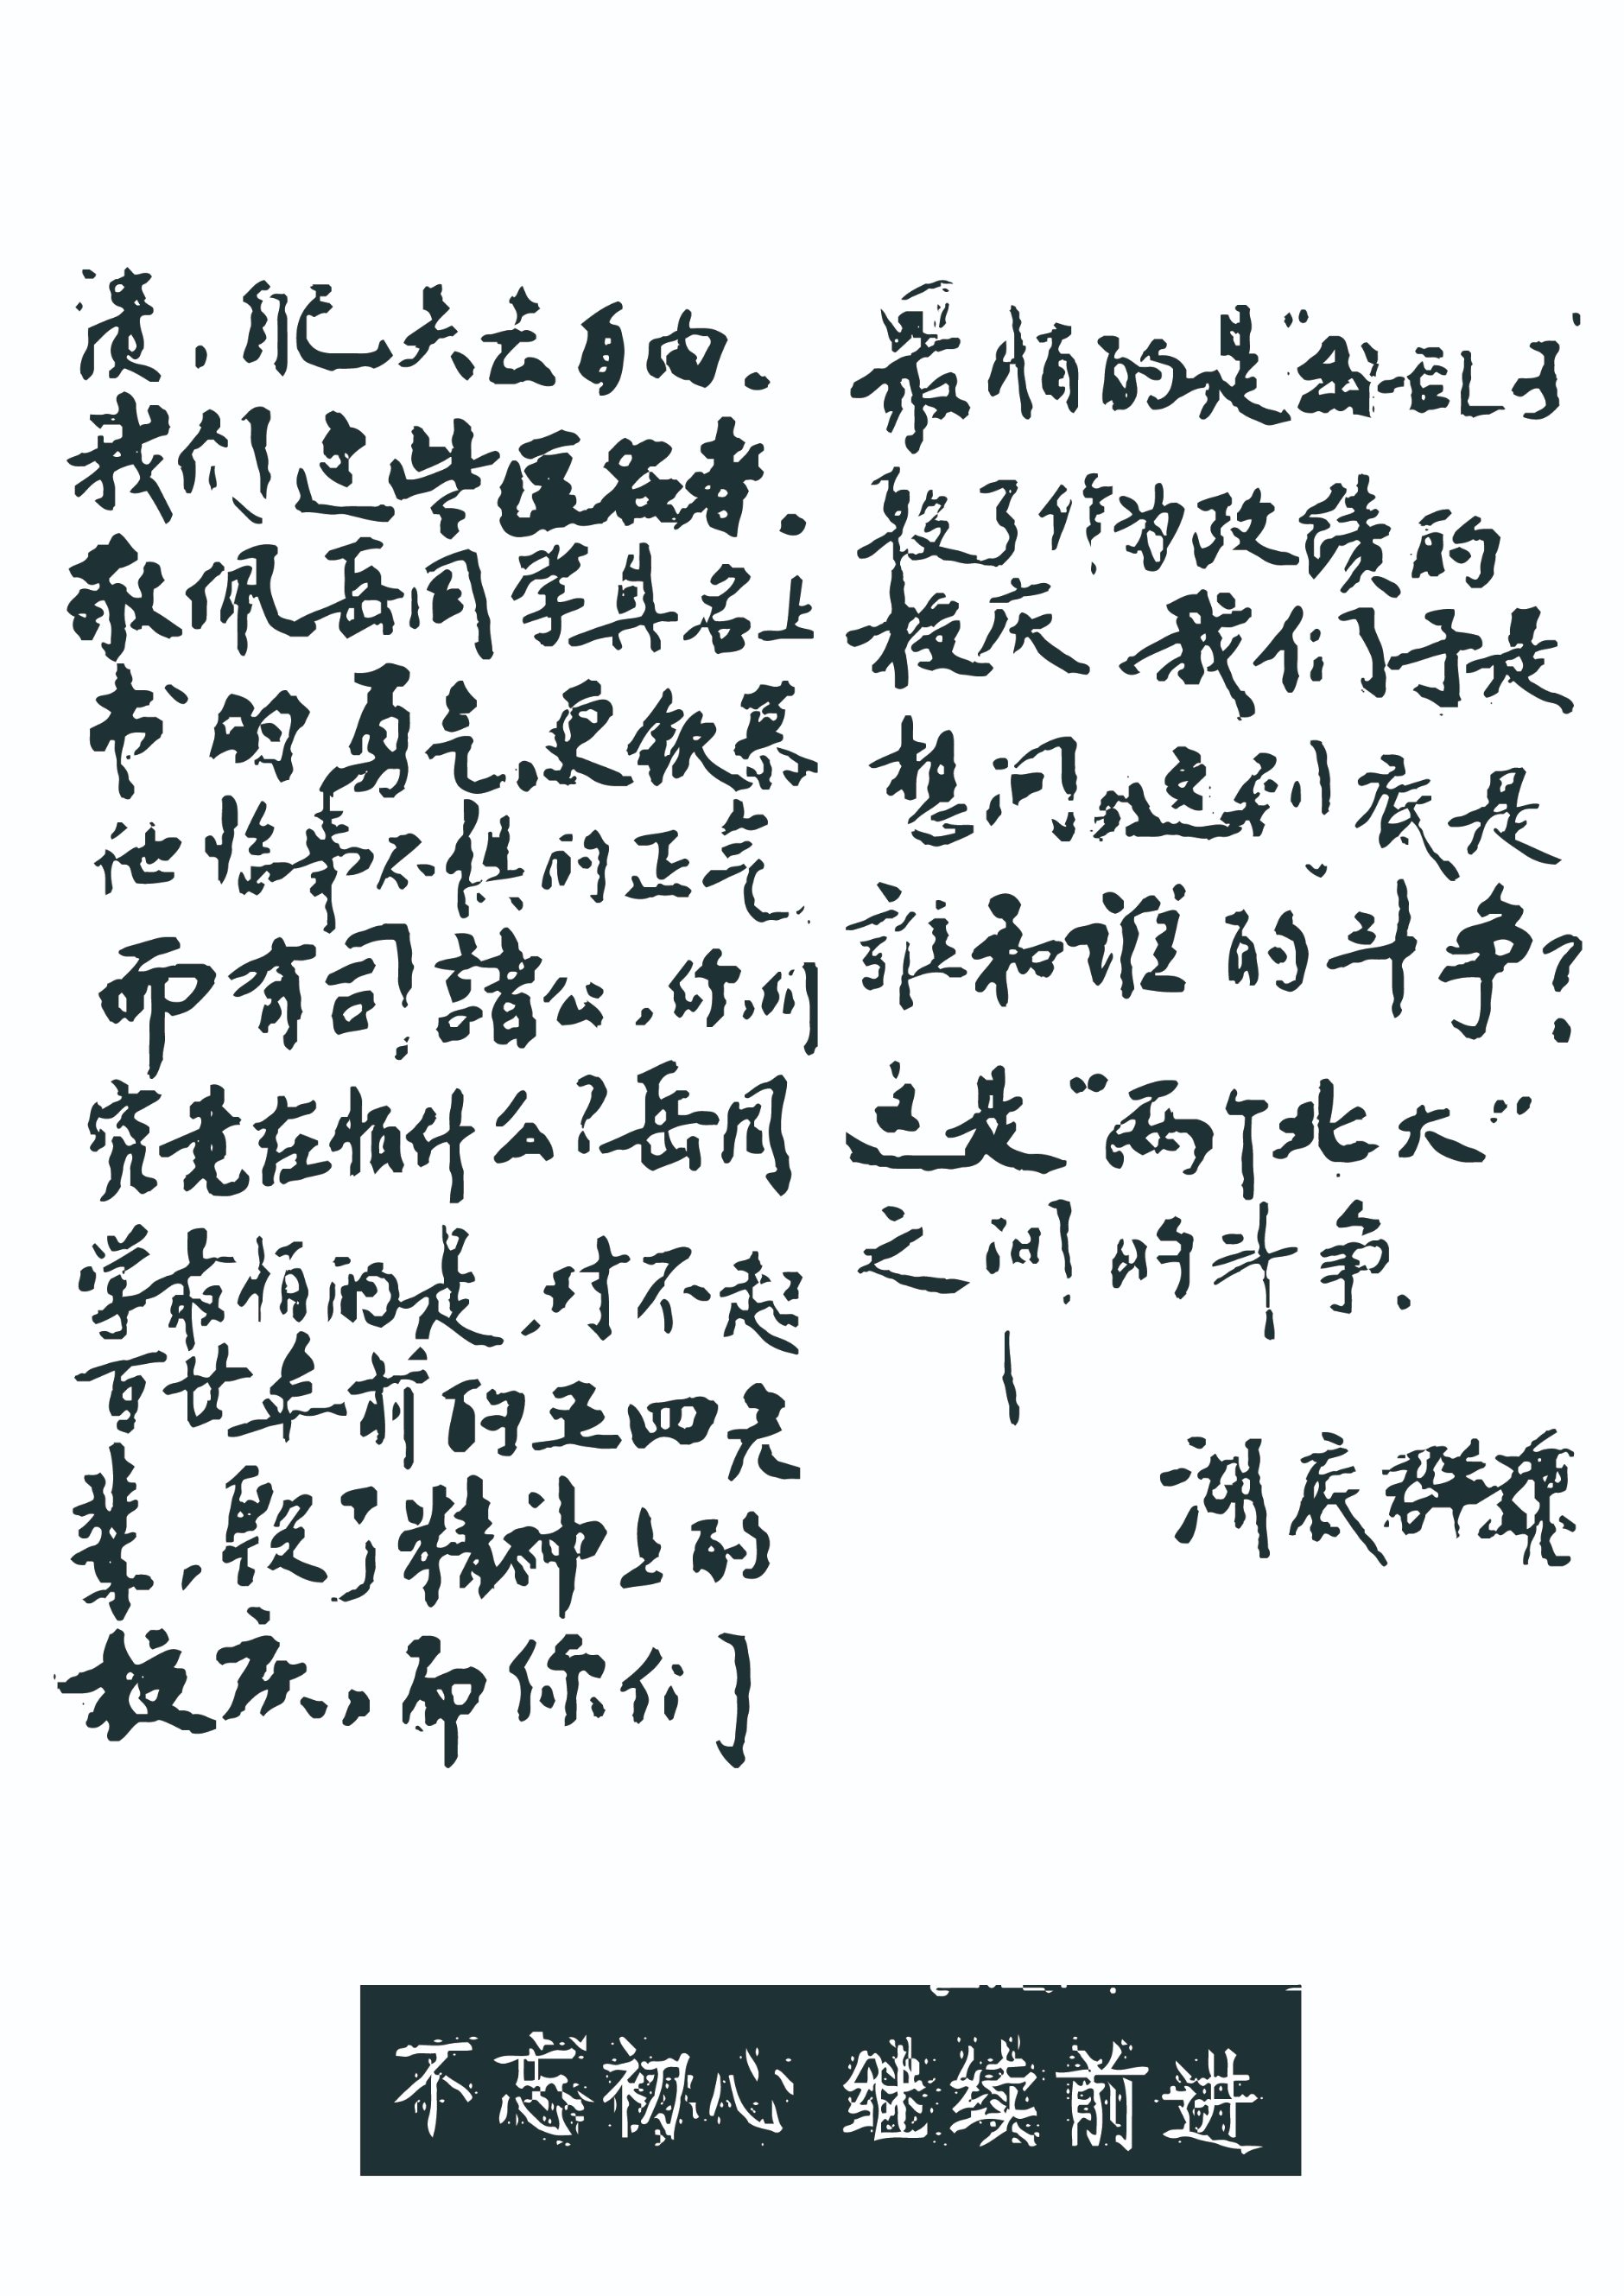 失去自由.
我们这些匿名者.
敬佩岳同学出名上
书的勇气,更钦慕
他不惧的正气
而有司诸公,你们
究竟在怕什么?岳同
学怕的是,对不起
百廿年前的五四先
辈,毁了精神上的
校庆,而你们
最怕的是
毁了你们政绩的
校庆 我们于是
想问:这到底是
誰和谁的斗争?
这是"两个北大"
之间的斗争.
不忘初心 继续前进